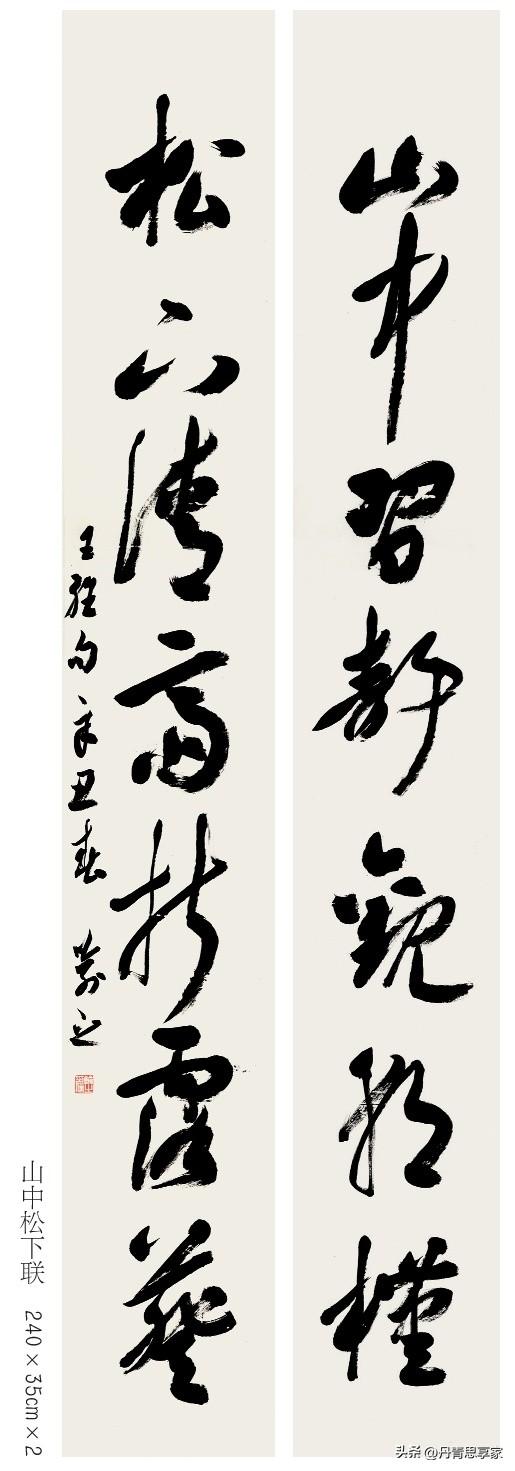 山中習靜觀朝槿
松下清齋折露葵
王維句辛丑春
山中松下联 240×35cm×2
头条@丹青思享家